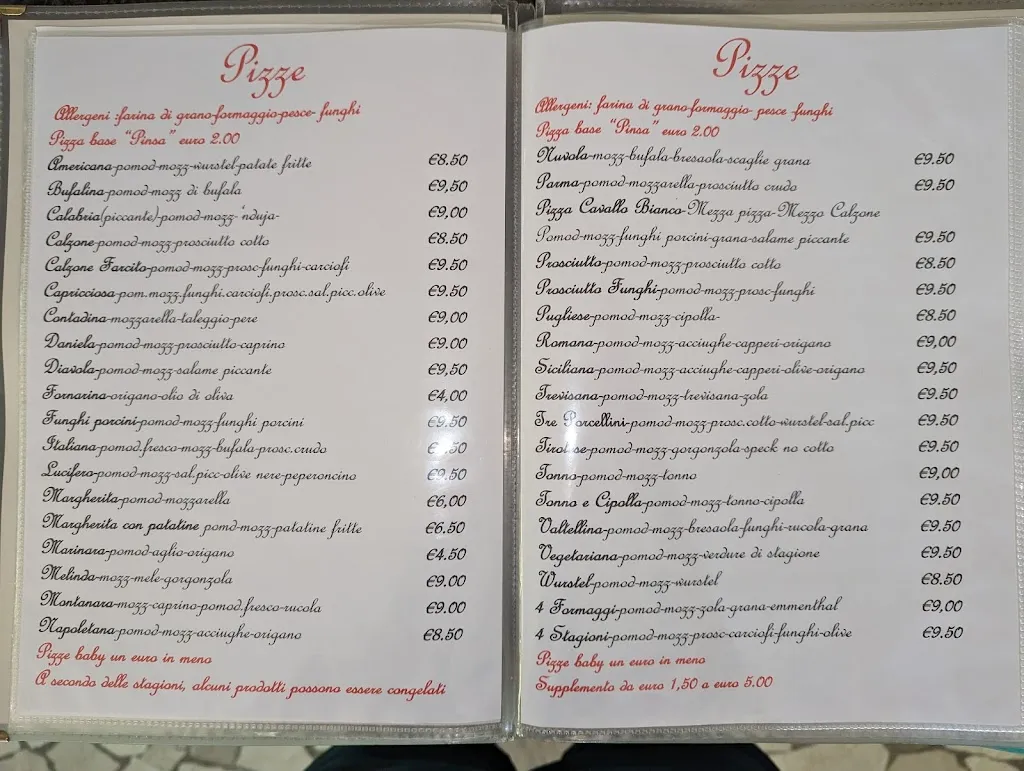 Pizze
Allergeni :farina di grano-formaggio-pesce- funghi
Pizza base "Pinsa" euro 2.00
Americana-pomod-mozz-wurstel-patate fritte €8.50
Bufalina-pomod-mozz di bufala €9,50
Calabria(piccante)-pomod-mozz-'nduja- €9,00
Calzone-pomod-mozz-prosciutto cotto €8.50
Calzone Farcito-pomod-mozz-prosc-funghi-carciofi €9.50
Capricciosa-pom.mozz.funghi.carciofi.prosc.sal.picc.olive €9.50
Contadina-mozzarella-taleggio-pere €9,00
Daniela-pomod-mozz-prosciutto-caprino €9.00
Diavola-pomod-mozz-salame piccante €9,50
Fornarina-origano-olio di oliva €4,00
Funghi porcini-pomod-mozz-funghi porcini €9.50
Italiana-pomod.fresco-mozz-bufala-prosc.crudo
Lucifero-pomod-mozz-sal.picc-olive nere-peperoncino €9.50
Margherita-pomod-mozzarella €6,00
Margherita con patatine pomd-mozz-patatine fritte €6.50
Marinara-pomod-aglio-origano €4.50
Melinda-mozz-mele-gorgonzola €9.00
Montanara-mozz-caprino-pomod.fresco-rucola €9.00
Napoletana-pomod-mozz-acciughe-origano €8.50
Pizze baby un euro in meno
A secondo delle stagioni, alcuni prodotti possono essere congelati
Pizze
Allergeni: farina di grano-formaggio- pesce -funghi
Pizza base "Pinsa" euro 2.00
Nuvola-mozz-bufala-bresaola-scaglie grana €9.50
Parma-pomod-mozzarella-prosciutto crudo €9.50
Pizza Cavallo Bianco-Mezza pizza-Mezzo Calzone
Pomod-mozz-funghi porcini-grana-salame piccante €9.50
Prosciutto-pomod-mozz-prosciutto cotto €8.50
Prosciutto Funghi-pomod-mozz-prosc-funghi €9.50
Pugliese-pomod-mozz-cipolla- €8.50
Romana-pomod-mozz-acciughe-capperi-origano €9,00
Siciliana-pomod-mozz-acciughe-capperi-olive-origano €9,50
Trevisana-pomod-mozz-trevisana-zola €9.50
Tre Porcellini-pomod-mozz-prosc.cotto-wurstel-sal.picc €9.50
Tirolese-pomod-mozz-gorgonzola-speck no cotto €9.50
Tonno-pomod-mozz-tonno €9,00
Tonno e Cipolla-pomod-mozz-tonno-cipolla €9.50
Valtellina-pomod-mozz-bresaola-funghi-rucola-grana €9.50
Vegetariana-pomod-mozz-verdure di stagione €9.50
Wurstel-pomod-mozz-wurstel €8.50
4 Formaggi-pomod-mozz-zola-grana-emmenthal €9,00
4 Stagioni-pomod-mozz-prosc-carciofi-funghi-olive €9.50
Pizze baby un euro in meno
Supplemento da euro 1,50 a euro 5.00